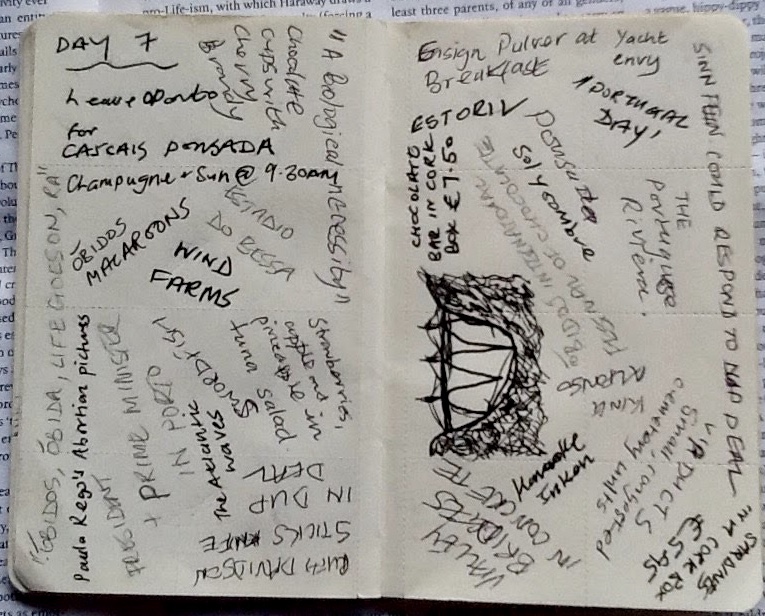 DAY 7
Leave OPORTO
for
CASCAIS POUSADA
Champagne + Sun @ 9.30am
Chocolate
cups with
Cherry
Brandy
"A Biological necessity"
ÓBIDOS
MACAROONS
ESTADIO
DO BESSA
WIND
FARMS
"ÓBIDOS, ÓBIDA, LIFE GOES ON, RA"
Paula Rego's Abortion pictures
PRESIDENT
+ PRIME MINISTER
IN PORTO
SWORDFISH
The Atlantic
waves
Strawberries,
apple and
pineapple in
tuna salad.
RUTH DAVIDSON
STICKS KNIFE
IN DUP
DEAL
Ensign Pulver at
Breakfast
Yacht
envy
'PORTUGAL
DAY'
SINN FEIN COULD RESPOND TO DUP DEAL
ESTORIL
CHOCOLATE
BAR IN CORK
BOX €7.50
Pousada
Soly
ÓBIDOS INTERNATIONAL
FESTIVAL OF CHOCOLATE
THE
Portuguese
Riviera.
KING
ALFONSO
VIADUCTS
Small, congested
cemetery units
VALLEY
BRIDGES
IN CONCRETE
Karaoke
SARDINES
IN A CORK BOX